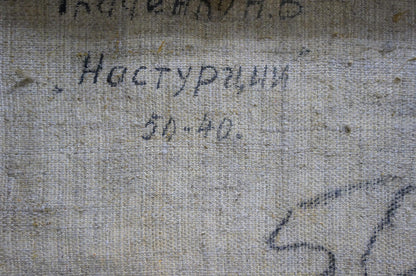 Ткаченко Н.В
„Настурции"
50-40.